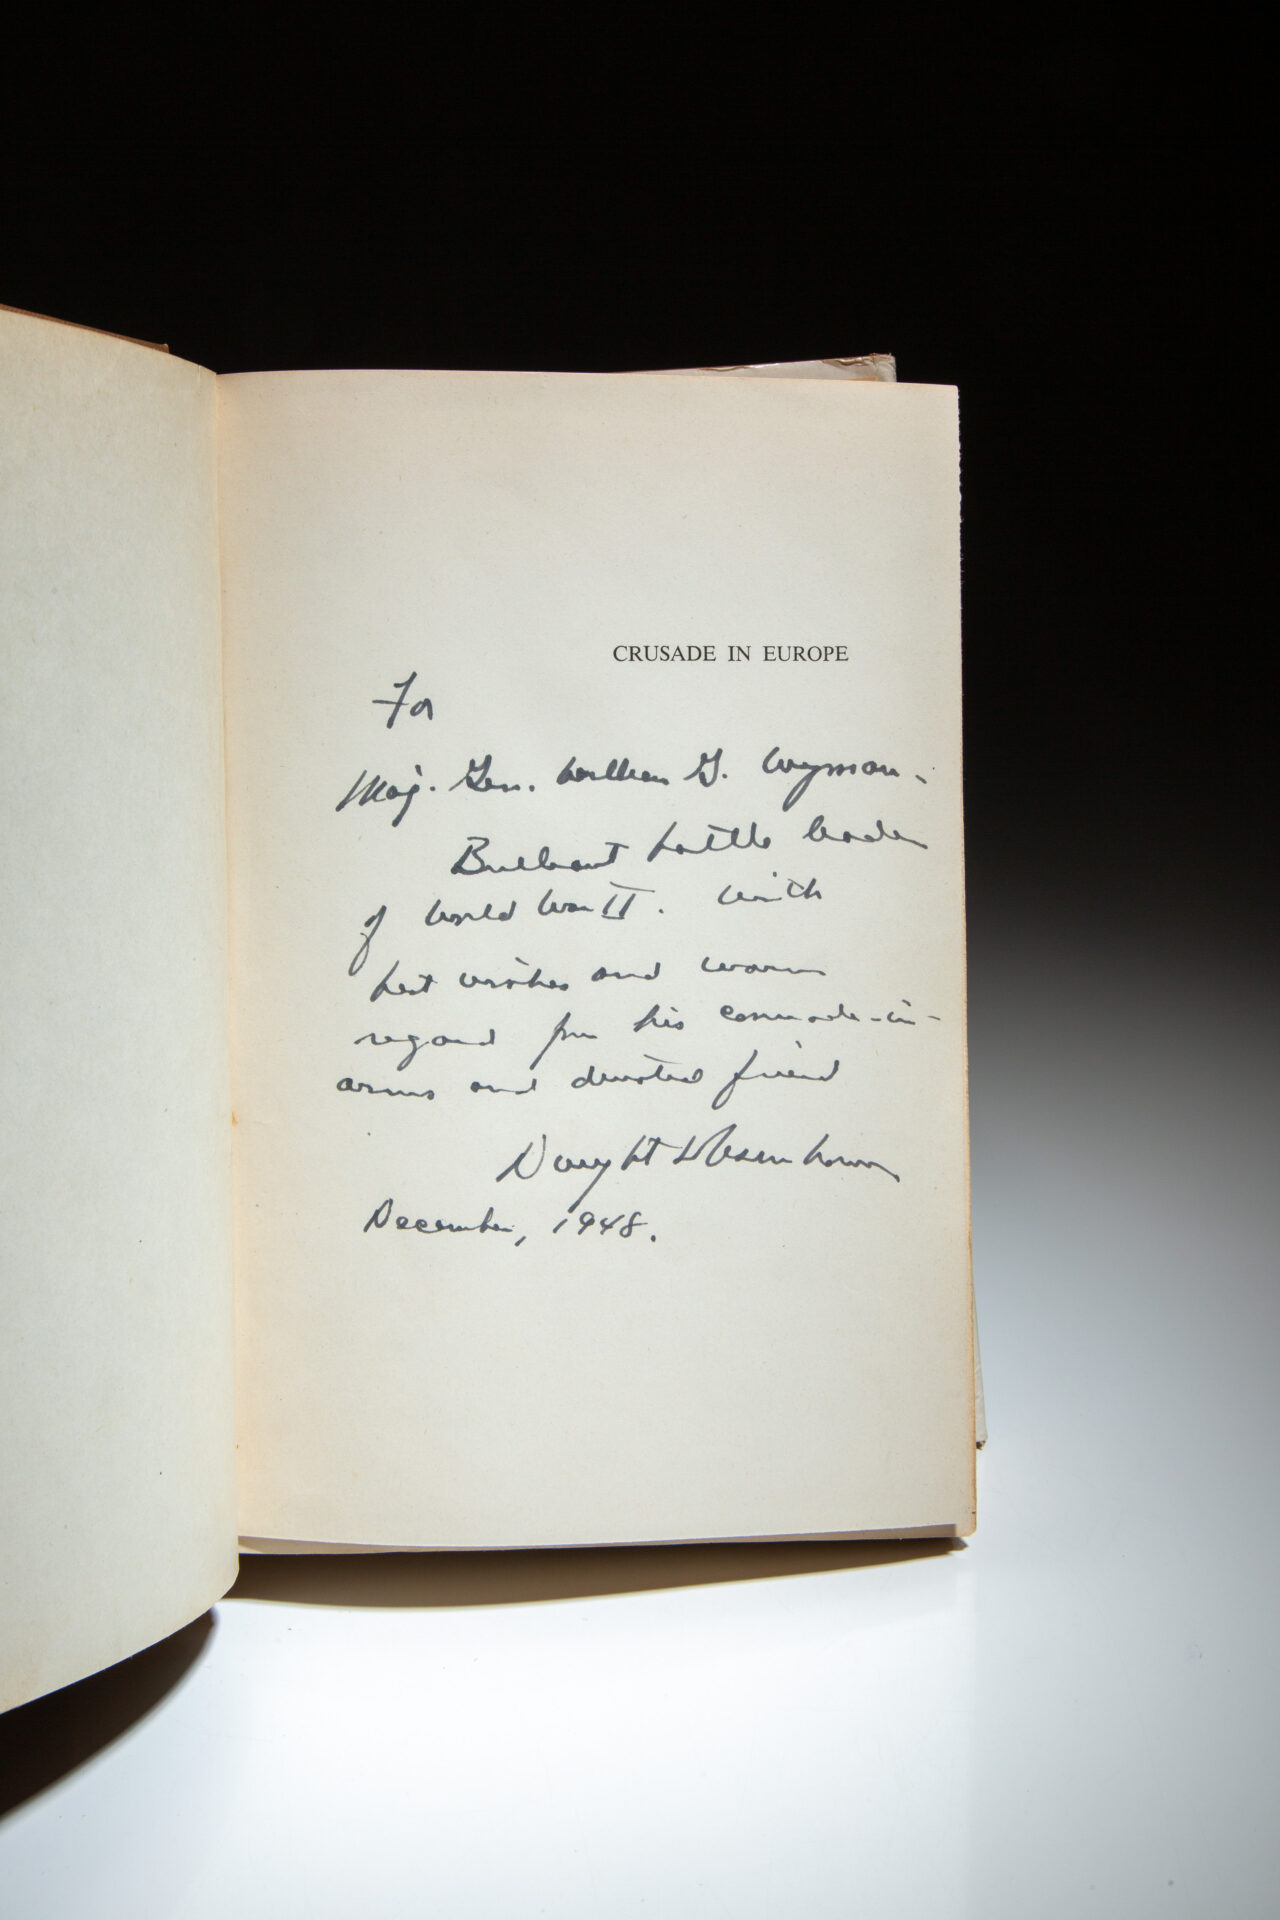 CRUSADE IN EUROPE
For
Maj. Gen. Willard G. Wyman -
Brilliant battle leader
of World War II. With
best wishes and warm
regard from his comrade-in-
arms and devoted friend
Dwight D Eisenhower
December, 1948.